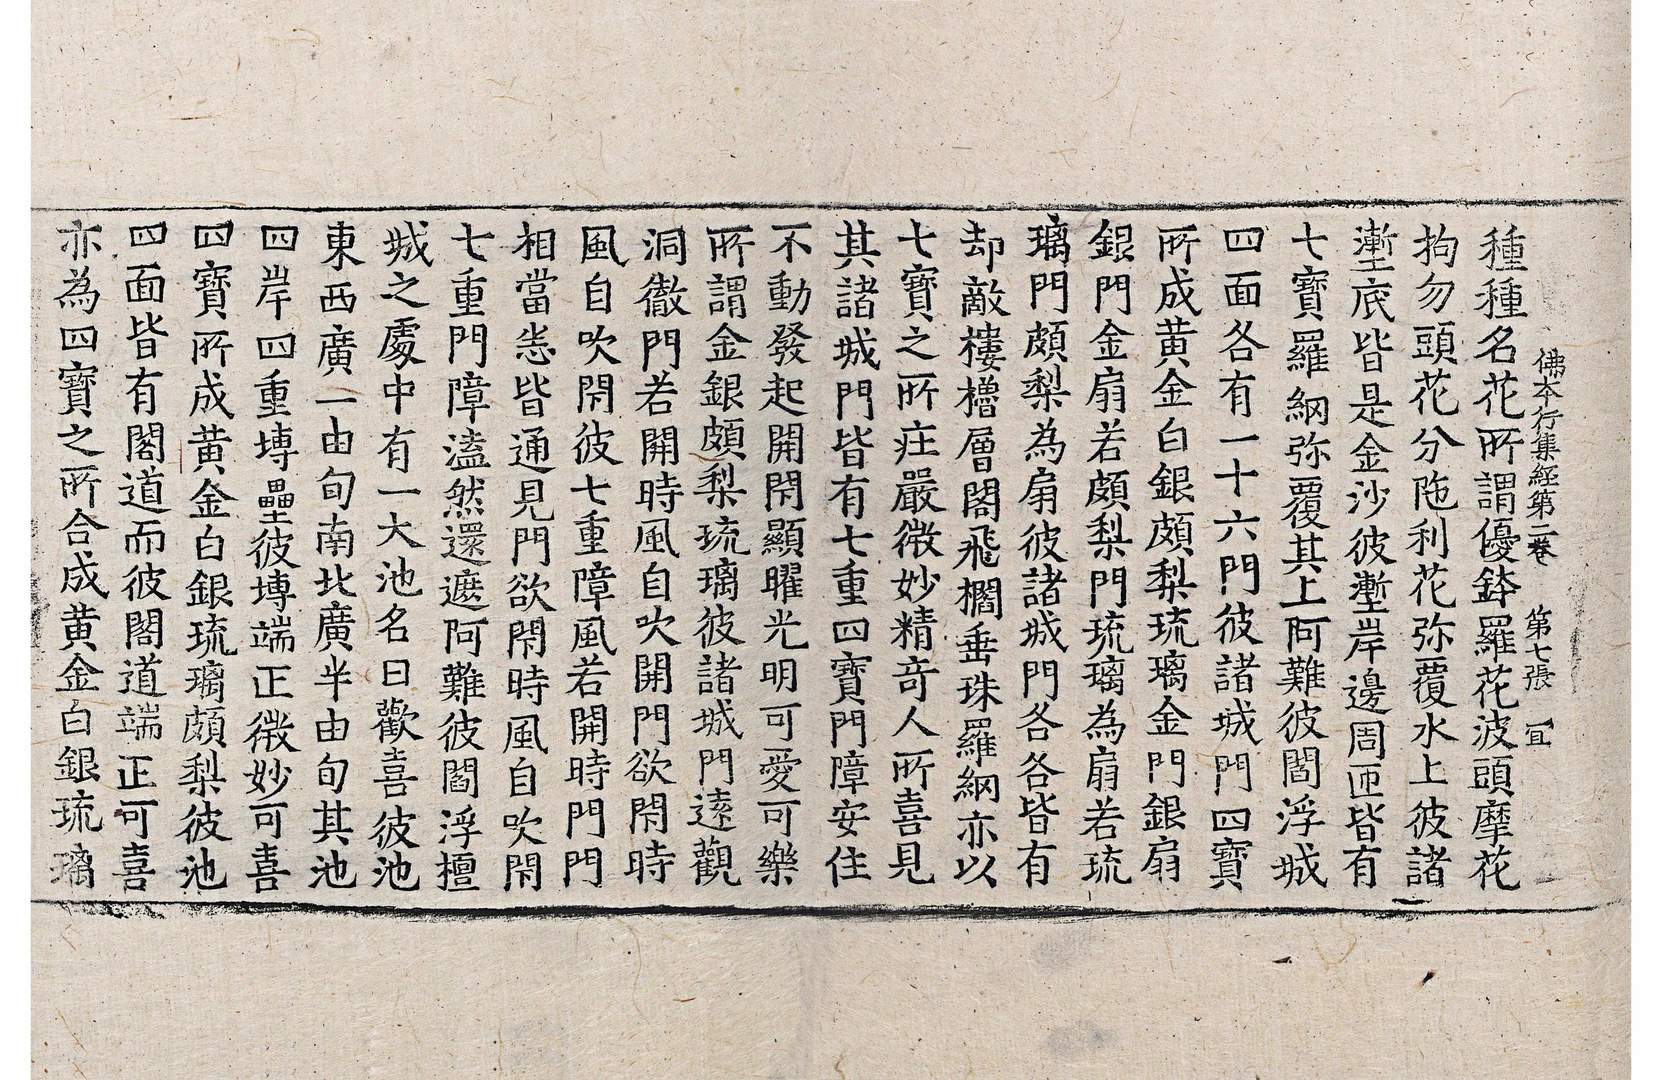 佛本行集經第二卷　第七張　宜
種種名花所謂優鉢羅花波頭摩花
拘勿頭花分陁利花弥覆水上彼諸
壍底皆是金沙彼壍岸邊周匝皆有
七寶羅網弥覆其上阿難彼閻浮城
四面各有一十六門彼諸城門四寶
所成黃金白銀頗梨琉璃金門銀扇
銀門金扇若頗梨門琉璃為扇若琉
璃門頗梨為扇彼諸城門各各皆有
却敵樓櫓層閣飛櫩垂珠羅網亦以
七寶之所庄嚴微妙精奇人所喜見
其諸城門皆有七重四寶門障安住
不動發起開閇顯曜光明可愛可樂
所謂金銀頗梨琉璃彼諸城門遠觀
洞徹門若開時風自吹開門欲閇時
風自吹閇彼七重障風若開時門門
相當恙皆通見門欲閇時風自吹閇
七重門障溘然還遮阿難彼閻浮檀
城之處中有一大池名曰歡喜彼池
東西廣一由旬南北廣半由旬其池
四岸四重塼壘彼塼端正微妙可喜
四寶所成黃金白銀琉璃頗梨彼池
四面皆有閣道而彼閣道端正可喜
亦為四寶之所合成黃金白銀琉璃